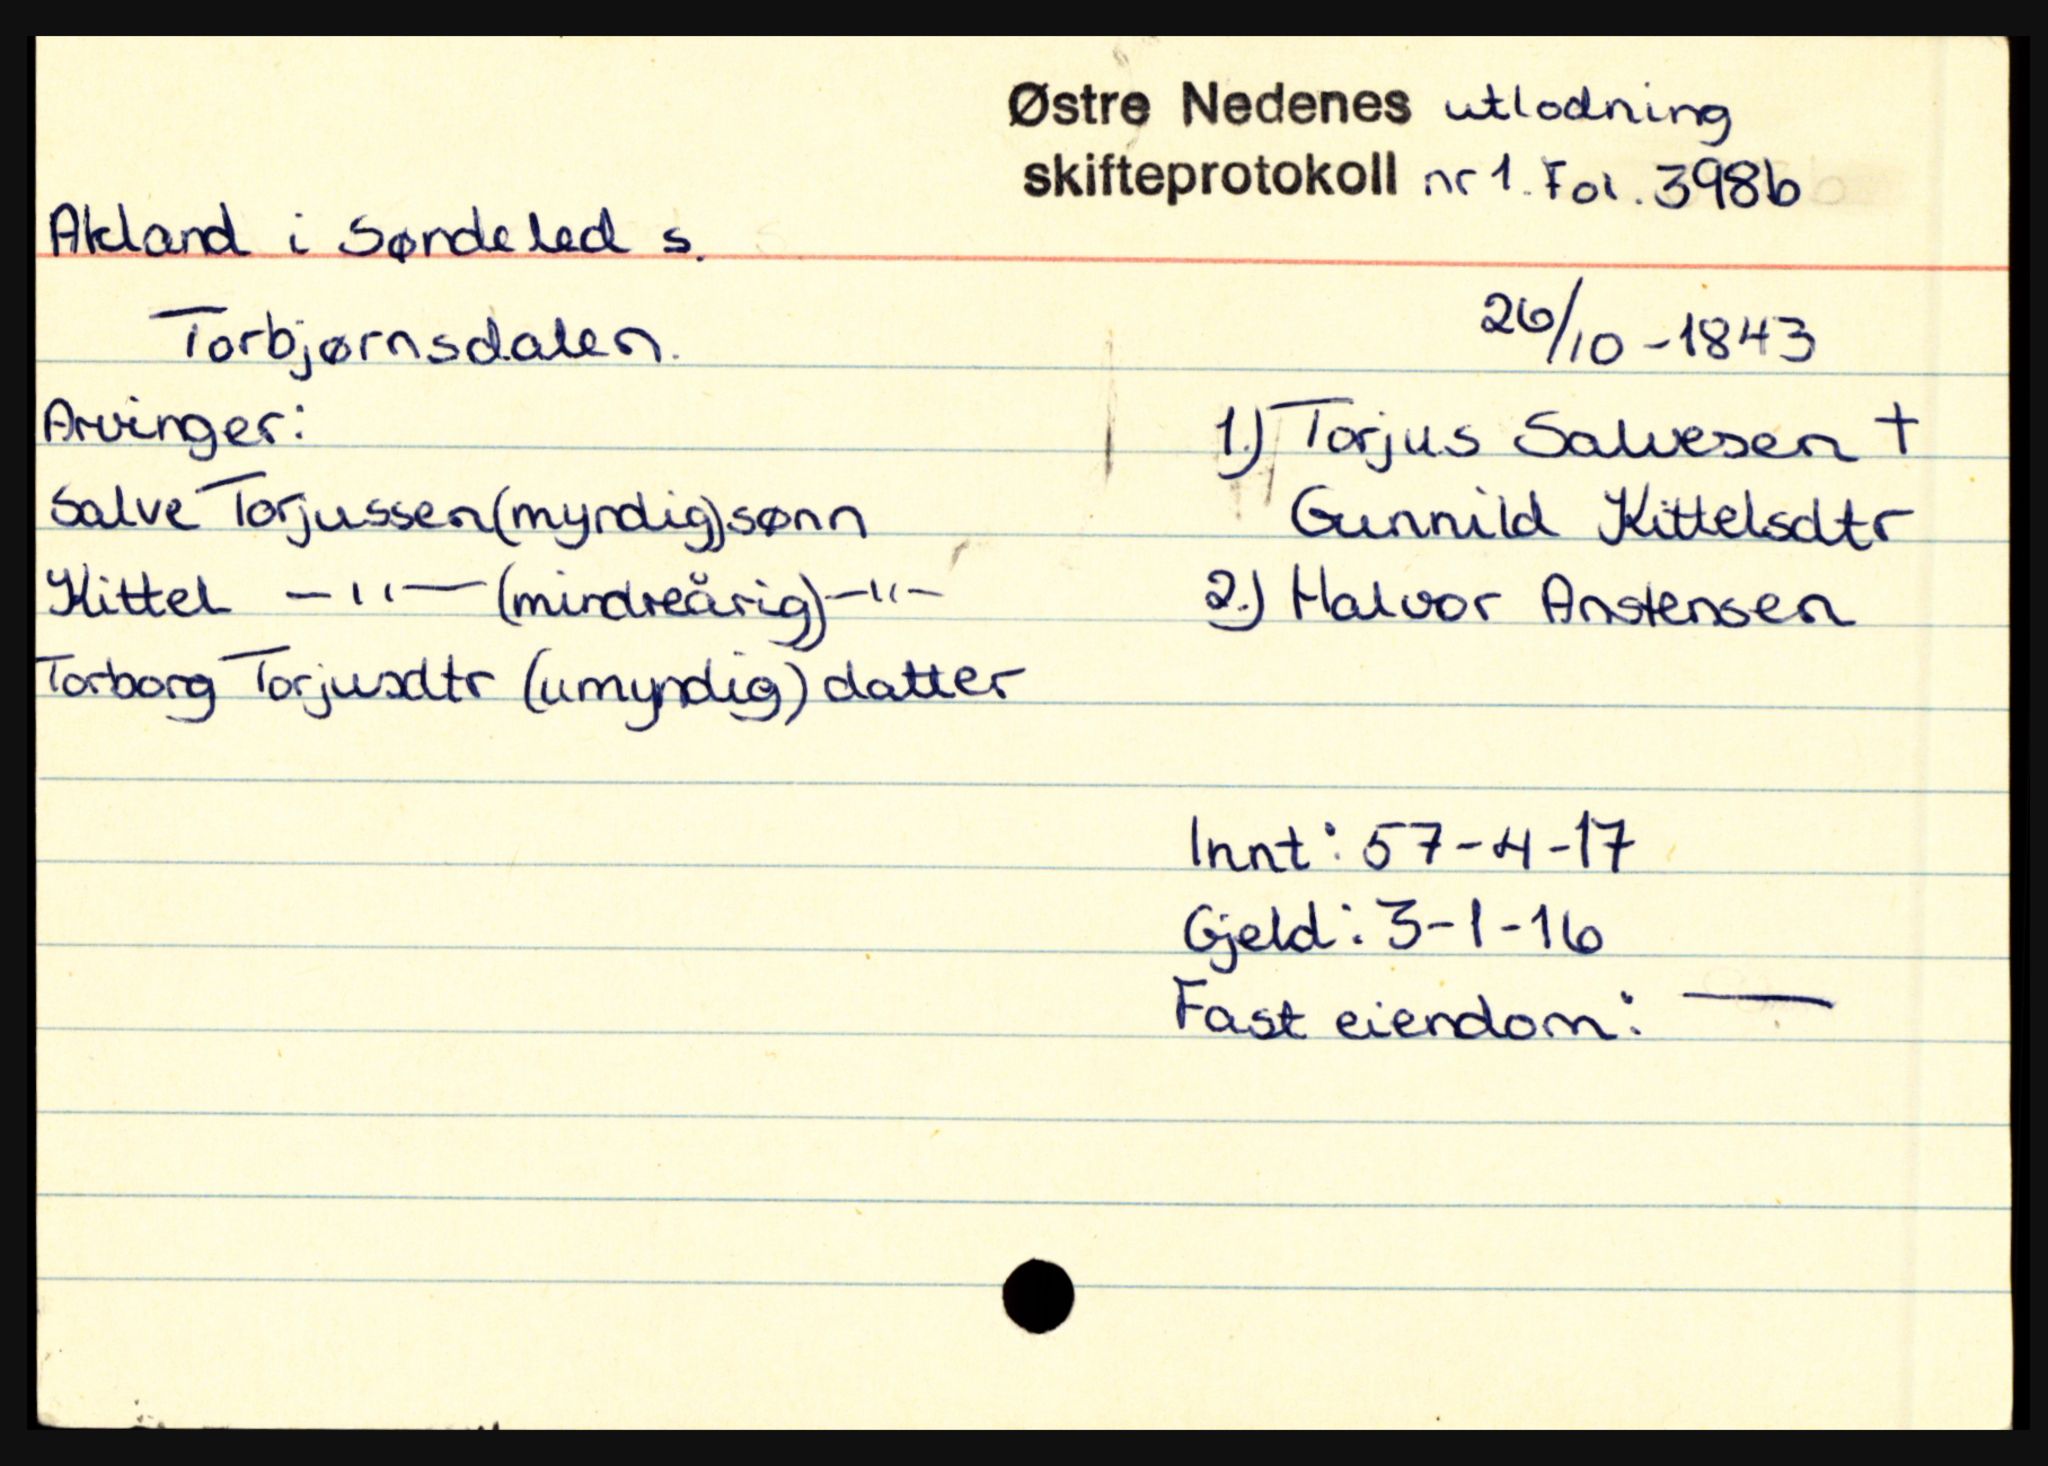 Østre Nedenes utlodning
skifteprotokoll nr 1. Fol. 398b
Akland i Søndeled s.
Torbjørnsdalen.
26/10-1843
Arvinger:
1.) Torjus Salvesen +
Salve Torjussen (myndig) sønn
Gunnild Kittelsdtr
Kittel —"— (mindreårig) —"—
2.) Halvor Anstensen
Torborg Torjusdtr (umyndig) datter
Innt: 57-4-17
Gjeld: 3-1-16
Fast eiendom: —